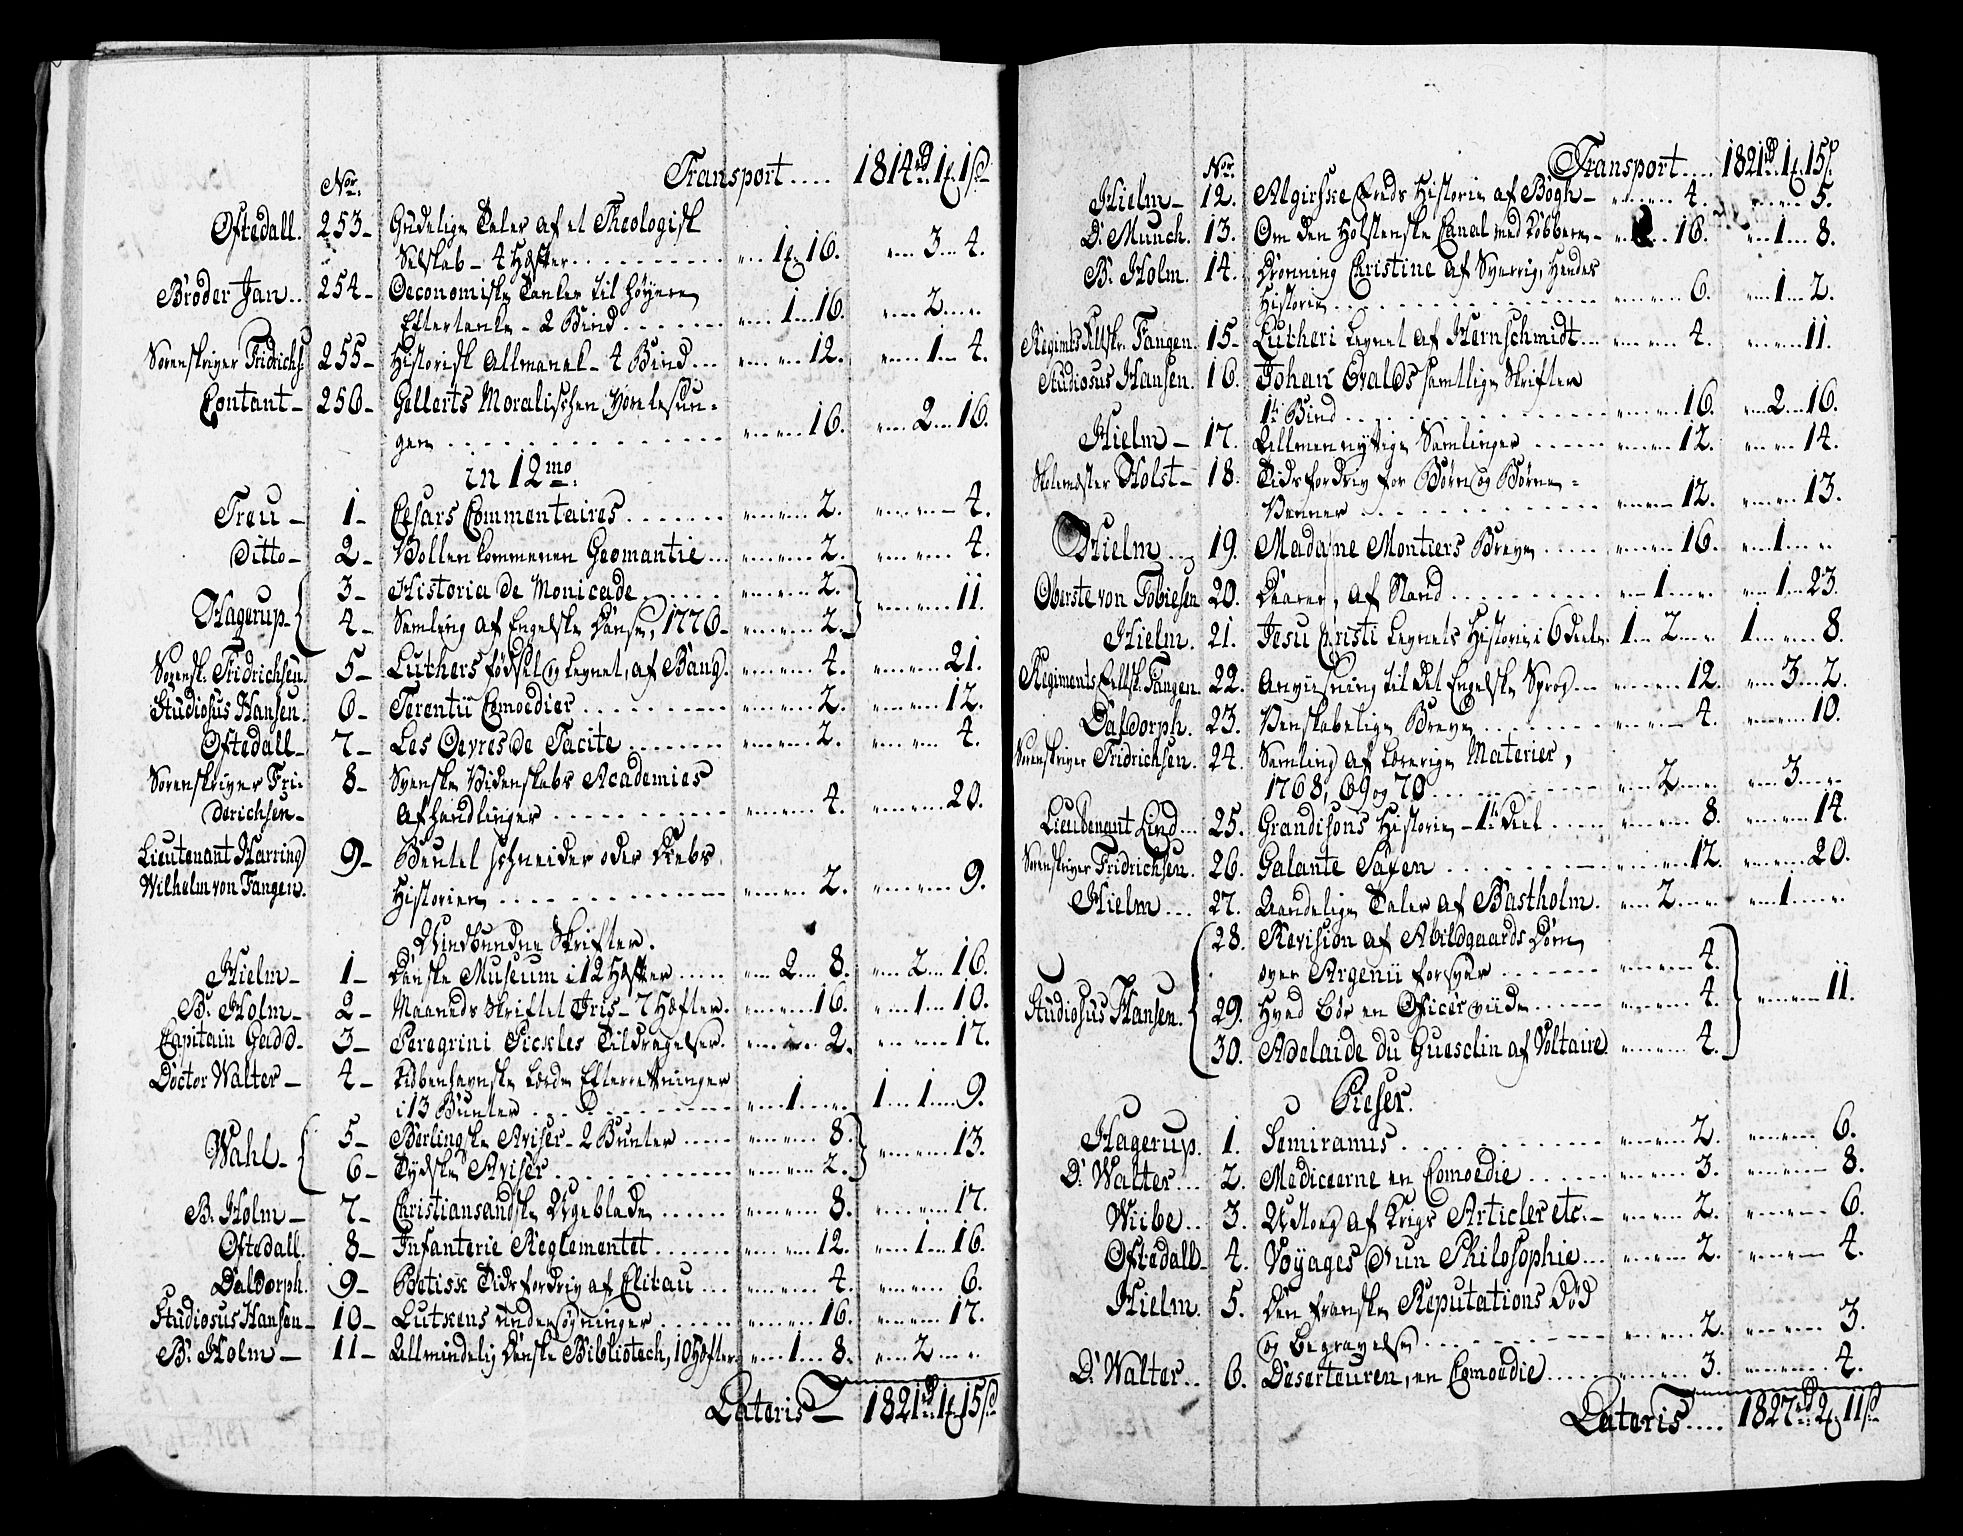 Transport .... 1814rd 1 1
No.
Oftedall. 253 - Gudelige Taler af et Theologisk
Selskab - 4 Hæfter ......... 1 16. 3 4.
Broder Jan .. 254 - Oeconomiske Tanker til høyere
Eftertanke - 2 Bind ....... 1 16. 2
Sorenskriver Fridrichs: 255 - Historisk Allmanak - 4 Bind ... 12. 1 4.
Contant - 256 - Gellerts Moralischen Vorlesun-
gen ............ 16. 2 16.
in 12mo:
Treu - 1 - Cesars Commentaires ....... 2. 4.
Ditto - 2 - Vollenkommenen Geomantie ... 2. 4.
Hagerup - { 3 - Historia de Monicade ...... 2. }
4 - Samling af Engelske Danse, 1776 - 2. } 11.
Sorensk. Fridrichsen. 5 - Luthers fødsel og Levnet, af Bang. 4. 21.
Studiosus Hansen. 6 - Terentii Comoedier ......... 2. 12.
Oftedall - 7 - Les Oevres de Tacite ....... 2. 4.
Sorenskriver Fri- 8 - Svenske Videnskabs Academies
derichsen - Afhandlinger ........... 4. 20.
Lieutenant Harring 9 - Beutel schneider oder Diebs
Wilhelm von Fangen. Historien ............ 2. 9.
Uindbundne Skrifter.
Hielm - 1 - Danske Museum i 12 Hæfter ..... 2 8. 2 16.
B. Holm - 2 - Maaneds Skriftet Iris - 7 Hæfter. 16. 1 10.
Capitain Gadd - 3 - Peregrini Pickles Tildragelser. 2. 17.
Doctor Walter - 4 - Kiøbenhavnske Lærde Efterretninger
i 13 Bunter ............ 1 1 1 9.
Wahl - { 5 - Berlingske Aviser - 2 Bunter ..... 8. }
6 - Tydske Aviser ........... 2. } 13.
B. Holm - 7 - Christiansandske Ugeblade ...... 8. 17.
Oftedall. 8 - Infanterie Reglementet ....... 12. 1 16.
Daldorph. 9 - Poetisk Tidsfordriv af Clitau ... 4. 6.
Studiosus Hansen - 10 - Lutkens undersøgninger ....... 16. 17.
B. Holm - 11 - Allmindelig Danske Bibliotech, 10 Hæfter 1 8. 2
Lateris - 1821rd 1 15
Transport .... 1821rd 1 15
No.
Hielm - 12. Algirske Lands Historie af Bøgh - 4. 5.
D. Munch. 13. Om den Holstenske Canal med Kobbere - 16. 1 8.
B. Holm. 14. Dronning Christine af Sverrig, Hendes
Historie ............ 6. 1 2.
Regimts Feltskr. Fangen. 15 - Lutheri Levnet af Hernschmidt ... 4. 11.
Studiosus Hansen. 16. Johan Evalds samtlige Skrifter
1te Bind ............ 16. 2 16.
Hielm - 17. Allmennyttige Samlinger ...... 12. 14.
Skolemester Holst - 18. Tidsfordriv for Børn og Børne-
Venner ............ 12. 13.
Hielm ... 19. Madame Montiers Breve ..... 16. 1
Oberste von Tobiesen 20. af Stand ......... 1 1 23.
Hielm. 21. Jesu Christi Levnets Historie i 6 Deele. 1 2 1 8.
Regiments Feltsk. Fangen. 22. Anviisning til det Engelske Sprog ... 12. 3 2.
Daldorph. 23. Venskabelige Breve ........ 4. 10.
Sorenskriver Fridrichsen. 24. Samling af Lærerige Materier,
1768, 69 og 70 .......... 2 3
Lieutenant Lind ... 25. Grandisons Historie - 1te Deel ..... 8. 14.
Sorenskriver Fridrichsen. 26. Galante Safen .......... 12. 20.
Hielm .... 27. Aandelige Taler af Bastholm. 2 1
Studiosus Hansen. { 28. Revision af Abildgaards Dom
over Argenii forsvar ....... 4. }
29. Hvad bør en Oficer viide ...... 4. } 11.
30. Adelaide du Guesclin af Voltaire. 4. }
Pieser.
Hagerup. 1. Semiramis ........... 2. 6.
D. Walter ... 2. Mediceerne en Comoedie ...... 3. 8.
Wiibe .. 3. Udtog af Krigs Articler etc. - 2. 6.
Oftedall - 4. Voyages d'un Philosophie ... 2. 4.
Hielm. 5. Den franske Reputations Død
og begravelse .......... 2. 3.
D. Walter .. 6. Deserteuren, en Comoedie ..... 3. 4.
Lateris .... 1827rd 2 11